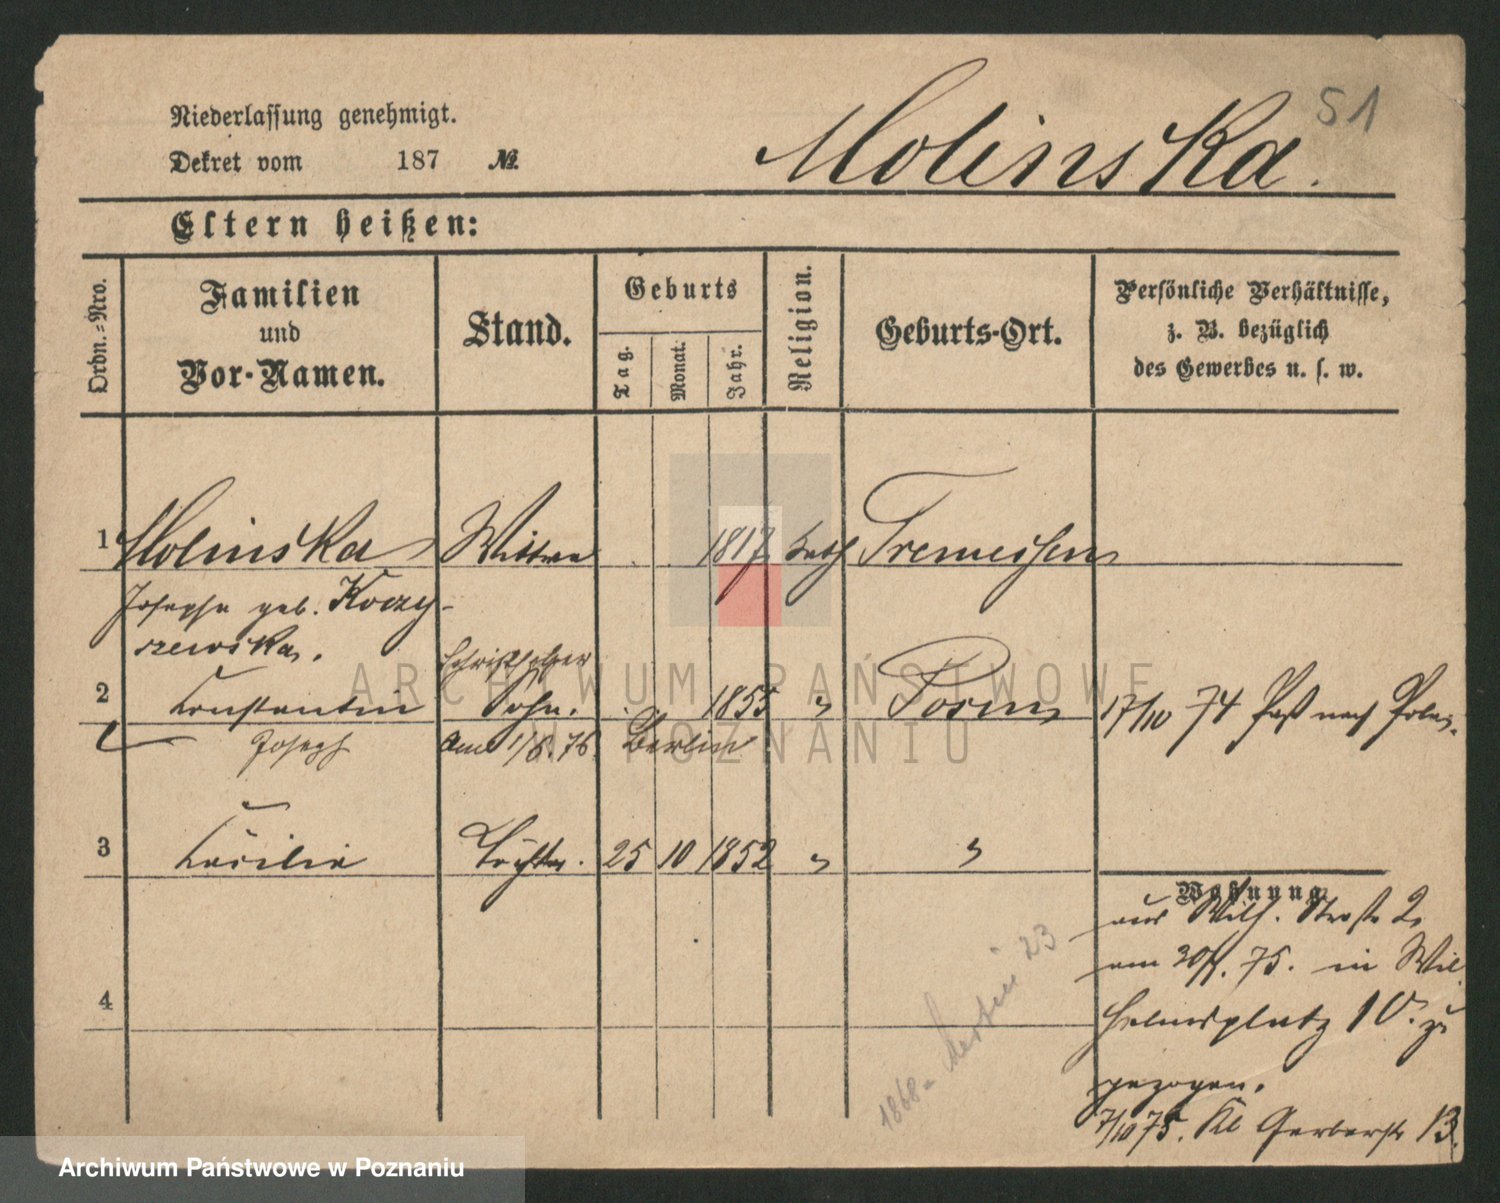 51
Niederlassung genehmigt.
Dekret vom 187 №
Molinska.
Eltern heißen:
Ordn.=Nro.
Familien
und
Vor-Namen.
Stand.
Geburts
Tag.
Monat.
Jahr.
Religion.
Geburts-Ort.
Persönliche Verhältnisse,
z. B. bezüglich
des Gewerbes u. s. w.
1 Molinska Wittwe 1817 kath Tremessen
Josepha geb. Koczy-
rzewska.
Schriftsetzer
2 Constantin Sohn. 1855 " Posen 17/10 74 Paß nach Polen.
Joseph am 1/8. 76. Berlin
3 Cäcilie Tochter. 25 10 1852 " "
Wohnung
aus Wilh. Straße 2
am 75. in Wil
helmsplatz 10. zu
4
gezogen.
7/10 75. Kl Gerberstr 13.
1868 Martin 23
ARCHIWUM PAŃSTWOWE
W POZNANIU
Archiwum Państwowe w Poznaniu